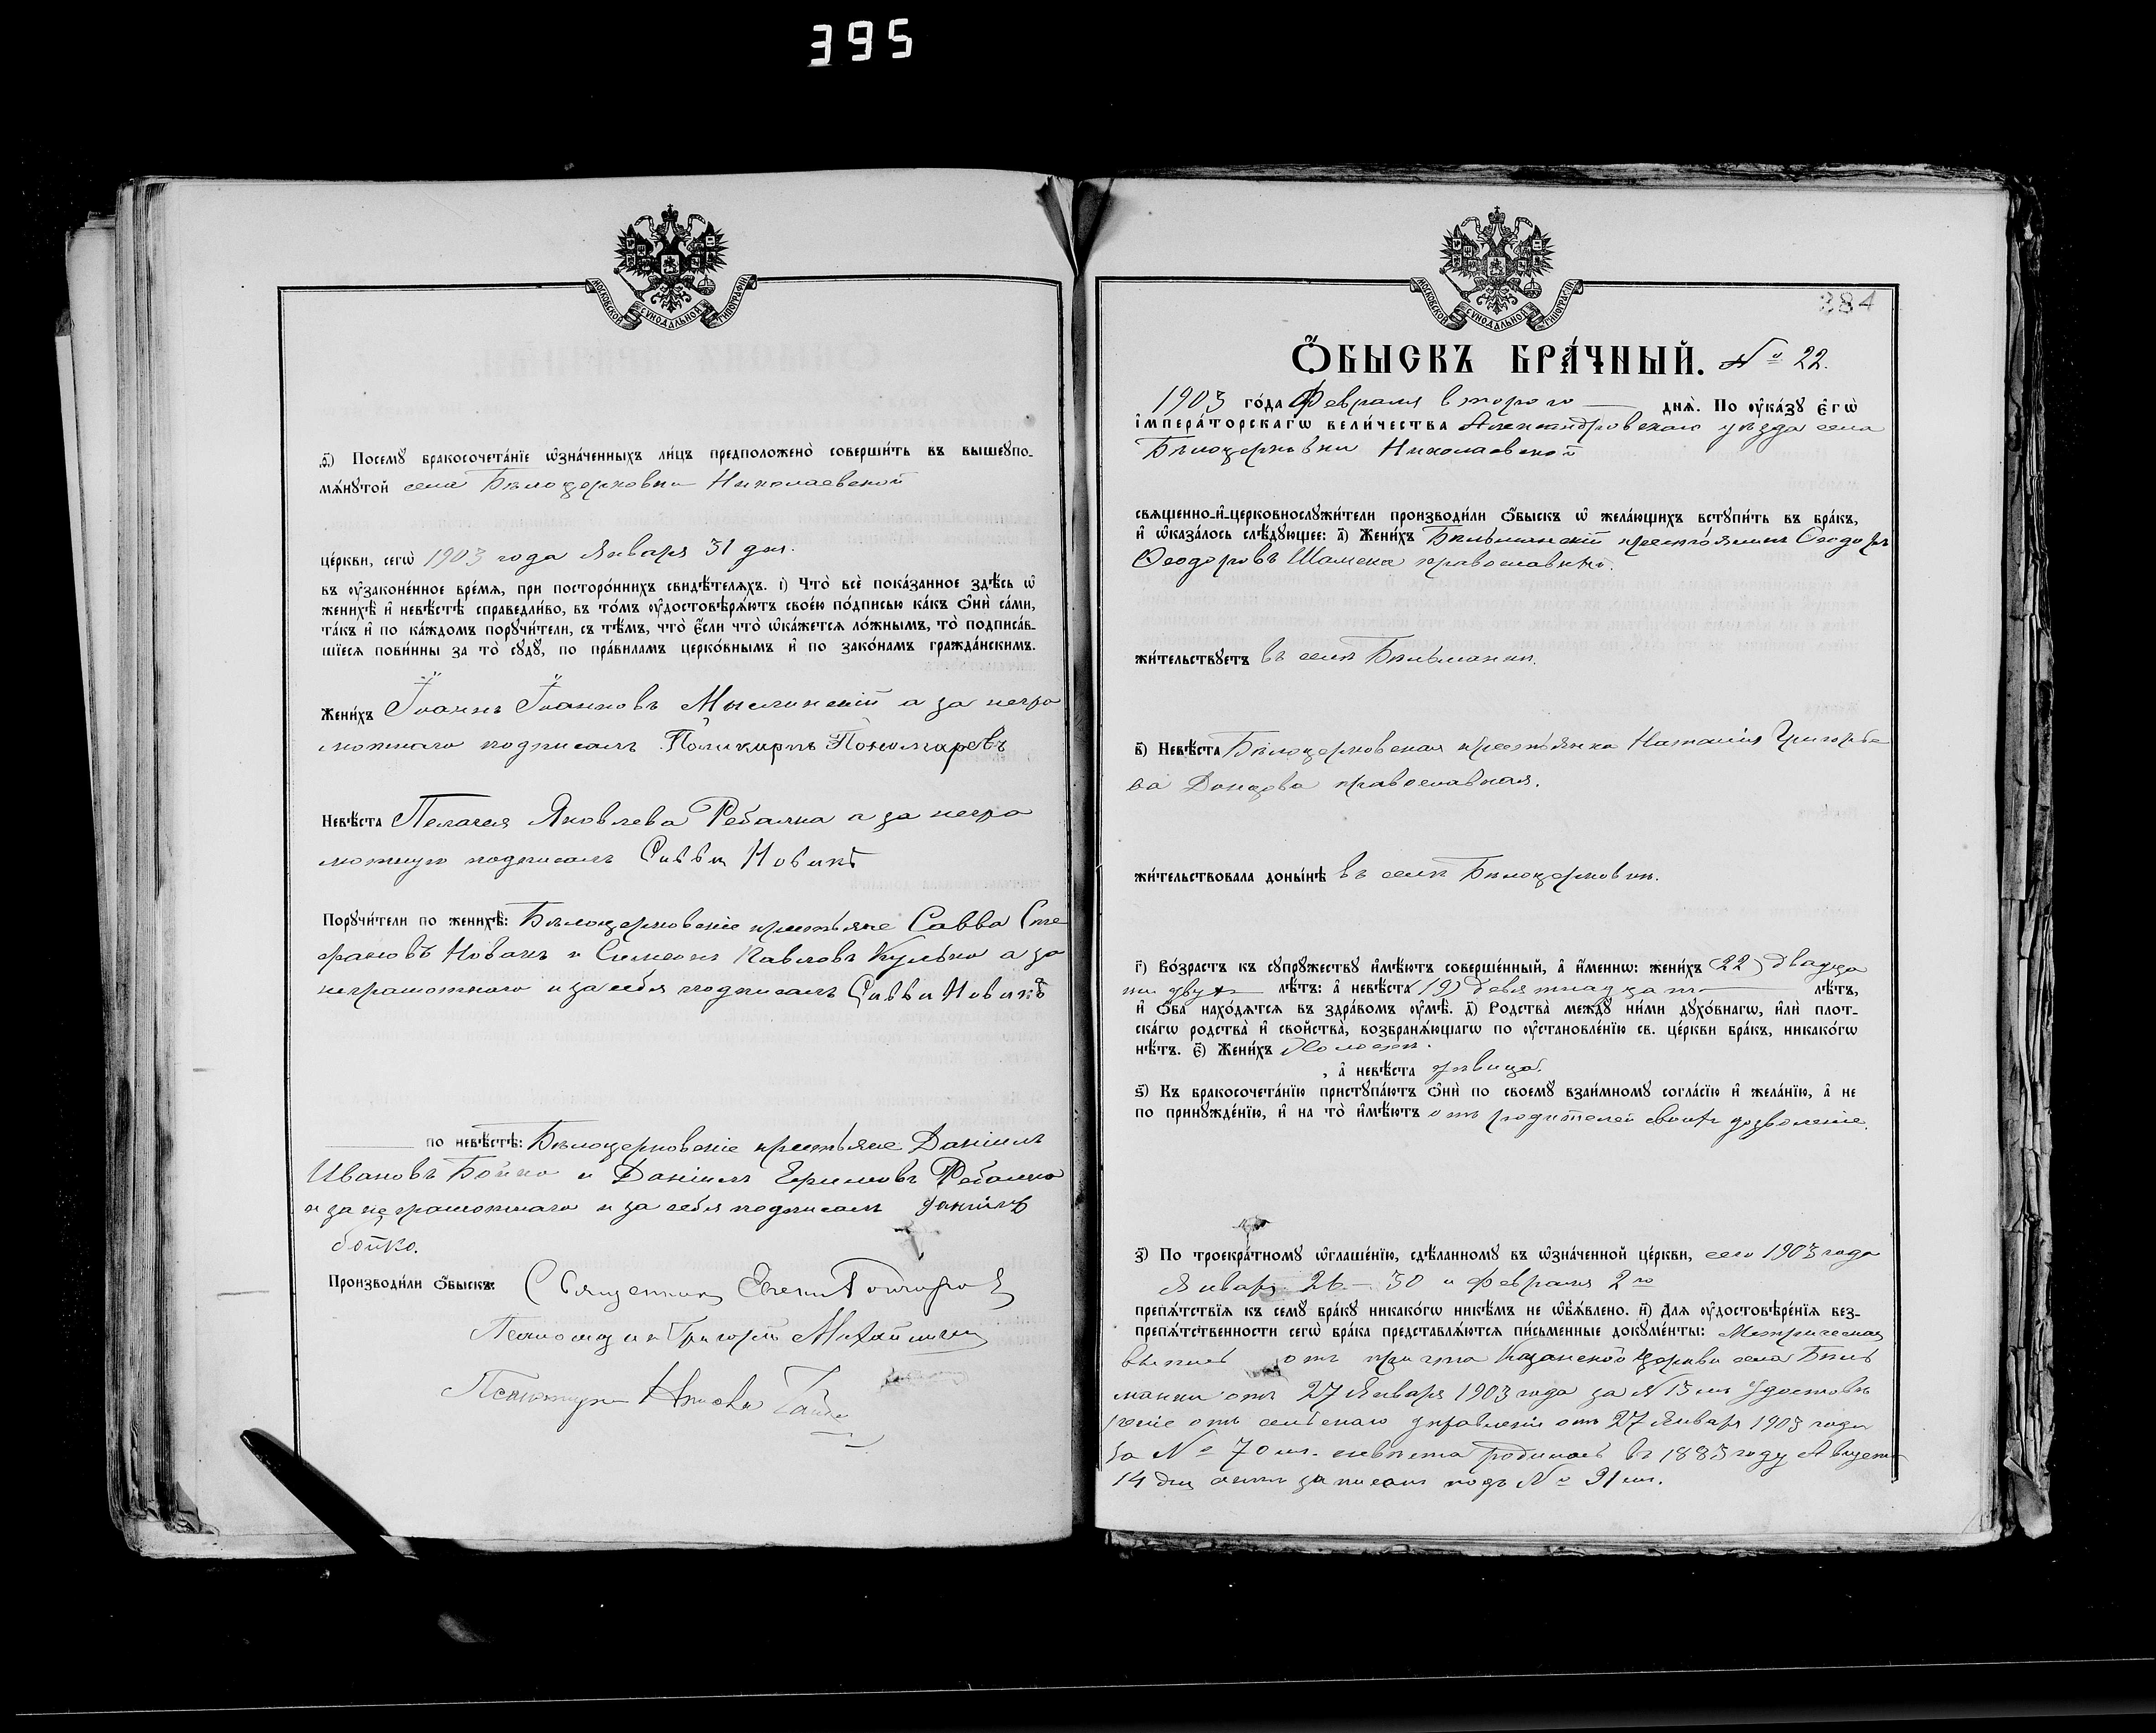 395
МОСКОВСКОЙ СУНОДАЛЬНОЙ ТИПОГРАФІИ
ѳ҃) Посемꙋ̀ бракосочета́нїе ѡ҆зна́ченныхъ ли́цъ предположено̀ соверши́ть въ вышеꙋпо-
мѧ́нꙋтой села Бѣлоцерковки Николаевской
це́ркви, сегѡ̀ 1903 года Января 31 дня.
въ ᲂу҆зако́ненное вре́мѧ, при посторо́ннихъ свидѣ́телѧхъ. і҃) Что̀ всѐ пока́занное здѣ́сь ѡ҆
женихѣ̀ и҆ невѣ́стѣ справедли́во, въ то́мъ ᲂу҆достовѣрѧ́ютъ свое́ю по́дписью ка́къ ѻ҆нѝ са́ми,
та́къ и҆ по ка́ждомъ порꙋчи́тели, съ тѣ́мъ, что̀ є҆́сли что̀ ѡ҆ка́жетсѧ ло́жнымъ, то̀ подписа́в-
шїесѧ пови́нны за то̀ сꙋдꙋ̀, по пра́виламъ церко́внымъ и҆ по зако́намъ гражда́нскимъ.
Жени́хъ Іоаннъ Іоанновъ Мыслинскій а за негра
мотнаго подписалъ Поликарпъ Пономаревъ
Невѣ́ста Пелагея Яковлева Ребалка а за негра
мотную подписалъ Савва Новакъ
Порꙋчи́тели по женихѣ̀: Бѣлоцерковскіе крестьяне Савва Сте
фановъ Новакъ и Симеонъ Павловъ Кулько а за
неграмотнаго и за себя подписалъ Савва Новакъ
по невѣ́стѣ: Бѣлоцерковскіе крестьяне Даніилъ
Ивановъ Бойко и Даніилъ Ефимовъ Ребалко
а за неграмотнаго и за себя подписалъ Даніилъ
бойко.
Производи́ли ѻ҆́быскъ: Священникъ Евгеній
Псаломщикъ Григорій Михайличенко
МОСКОВСКОЙ СУНОДАЛЬНОЙ ТИПОГРАФІИ
384
Ѻ҆́БЫСКЪ БРА́ЧНЫЙ. № 22.
1903 го́да Февраля второго днѧ̀. По ᲂу҆ка́зꙋ є҆гѡ̀
і҆мпера́торскагѡ вели́чества Александровскаго уѣзда села
Бѣлоцерковки Николаевской
свѧщенно-и҆-церковнослꙋжи́тели производи́ли ѻ҆́быскъ ѡ҆ жела́ющихъ встꙋпи́ть въ бра́къ,
и҆ ѡ҆каза́лось слѣ́дꙋющее: а҃) Жени́хъ Бѣльманскій крестьянинъ Ѳеодоръ
Ѳеодоровъ Шамека православный.
жи́тельствꙋетъ въ селѣ Бѣльманкѣ.
в҃) Невѣ́ста Бѣлоцерковская крестьянка Наталія Григорье
ва Донцова православная.
жи́тельствовала доны́нѣ въ селѣ Бѣлоцерковкѣ.
г҃) Во́зрастъ къ сꙋпрꙋ́жествꙋ и҆мѣ́ютъ соверше́нный, а҆ и҆́меннѡ: жени́хъ (22) двадца
ти двухъ лѣ́тъ: а҆ невѣ́ста (19) девятнадцати лѣ́тъ,
и҆ ѻ҆́ба нахо́дѧтсѧ въ здра́вомъ ᲂу҆мѣ̀. д҃) Родства̀ междꙋ̀ ни́ми дꙋхо́внагѡ, и҆лѝ плот-
ска́гѡ родства̀ и҆ сво́йства, возбранѧ́ющагѡ по ᲂу҆становле́нїю св. це́ркви бра́къ, никако́гѡ
нѣ́тъ. є҃) Жени́хъ Холостъ.
, а҆ невѣ́ста дѣвица.
ѕ҃) Къ бракосочета́нїю пристꙋпа́ютъ ѻ҆нѝ по своемꙋ̀ взаи́мномꙋ согла́сїю и҆ жела́нїю, а҆ не
по принꙋжде́нїю, и҆ на то̀ и҆мѣ́ютъ отъ родителей своихъ дозволеніе.
з҃) По троекра́тномꙋ ѡ҆глаше́нїю, сдѣ́ланномꙋ въ ѡ҆зна́ченной це́ркви, сего 1903 года
Января 26 – 30 и Февраля 2го
препѧ́тствїѧ къ семꙋ̀ бра́кꙋ никако́гѡ никѣ́мъ не ѡ҆б̾ѧ́влено. и҃) Длѧ ᲂу҆достовѣре́нїѧ без-
препѧ́тственности сегѡ̀ бра́ка представлѧ́ютсѧ пи́сьменные докꙋме́нты: Метрическая
выпись отъ причта Казанской церкви села Бѣль
манки отъ 27 Января 1903 года за № 15 мъ Удостовѣ
реніе отъ сельскаго управленія отъ 27 Января 1903 года
за № 70 мъ. невѣста родилась въ 1883 году Августа
14 дня актъ записанъ подъ № 91 мъ.